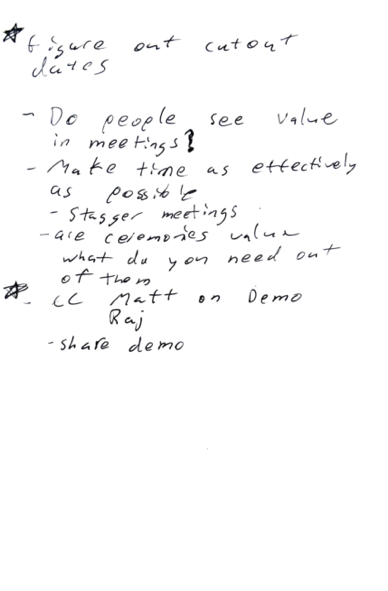 ★ Figure out cutout
dates
- Do people see value
in meetings?
- Make time as effectively
as possible
- Stagger meetings
- are ceremonies value
what do you need out
of them
★ - CC Matt on Demo
Raj
- share demo